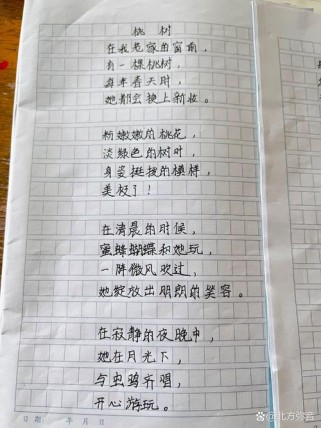 桃树
在我老家的窗前，
有一棵桃树，
每年春天时，
她都会换上新妆。
粉嫩嫩的桃花，
淡绿色的树叶，
身姿挺拔的模样，
美极了！
在清晨的时候，
蜜蜂蝴蝶和她玩，
一阵微风吹过，
她绽放出明朗的笑容。
在寂静的夜晚中，
她在月光下，
与虫鸡齐唱，
开心游玩。
日期： 年 月 日
@北方弥音